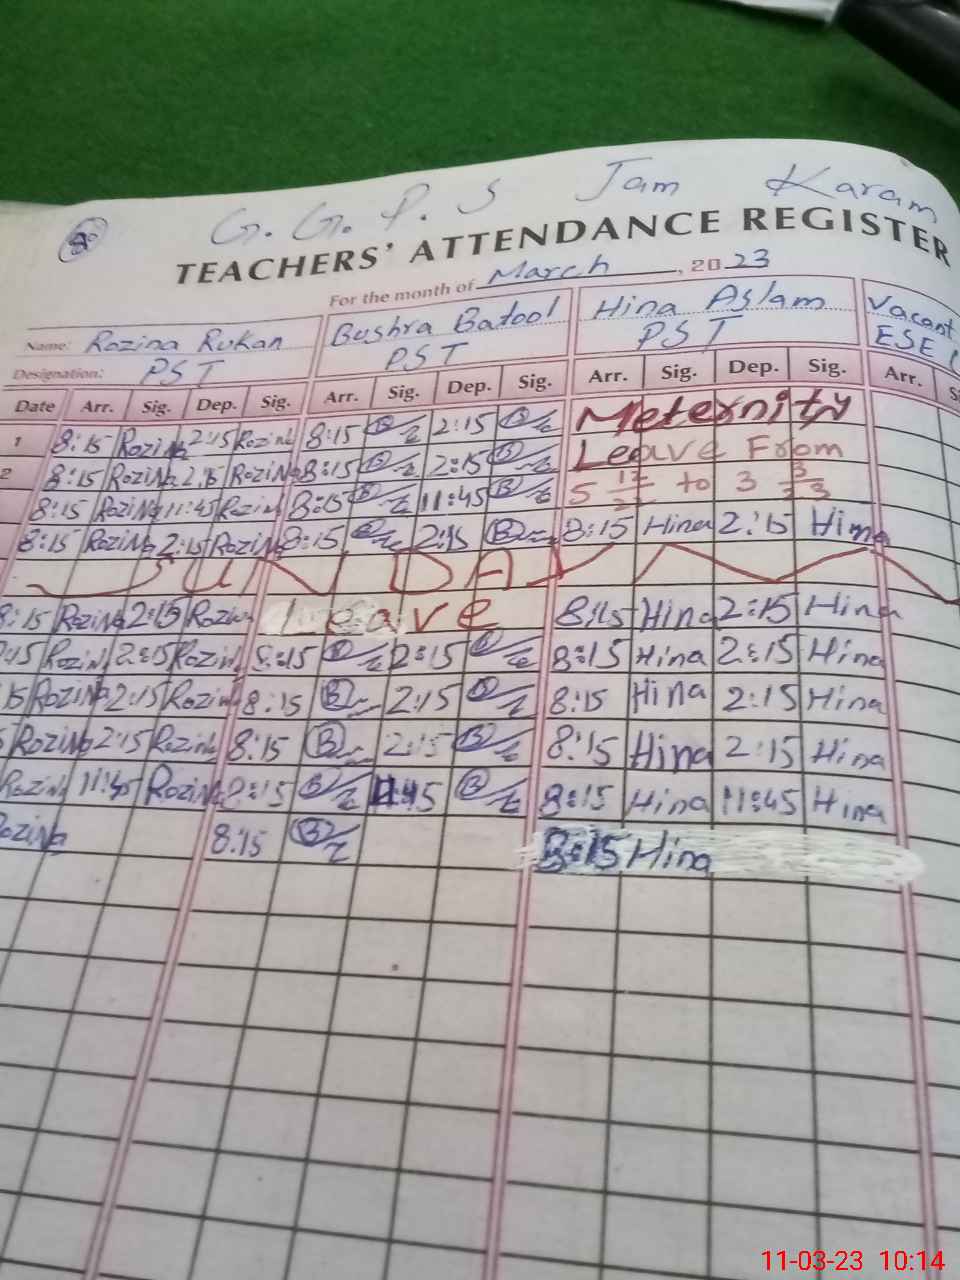 G.G.P.S Jam Karam
TEACHERS' ATTENDANCE REGISTER
For the month of March, 2023
Name: Rozina Rukan Bushra Batool Hina Aslam Vacant
Designation: PST PST PST ESE
Date Arr. Sig. Dep. Sig. Arr. Sig. Dep. Sig. Arr. Sig. Dep. Sig. Arr.
1 8:15 Rozina 2:15 Rozina 8:15 2:15 Meternity
2 8:15 Rozina 2:15 Rozina 8:15 2:15 Leave From
8:15 Rozina 11:45 Rozina 8:15 11:45 5 12/22 to 3 3/23
8:15 Rozina 2:15 Rozina 8:15 2:15 8:15 Hina 2:15 Hina
SUNDAY
8:15 Rozina 2:15 Rozina Leave 8:15 Hina 2:15 Hina
:45 Rozina 2:15 Rozina 8:15 2:15 8:15 Hina 2:15 Hina
15 Rozina 2:15 Rozina 8:15 2:15 8:15 Hina 2:15 Hina
Rozina 2:15 Rozina 8:15 2:15 8:15 Hina 2:15 Hina
Rozina 11:45 Rozina 8:15 11:45 8:15 Hina 11:45 Hina
Rozina 8:15 8:15 Hina
11-03-23 10:14